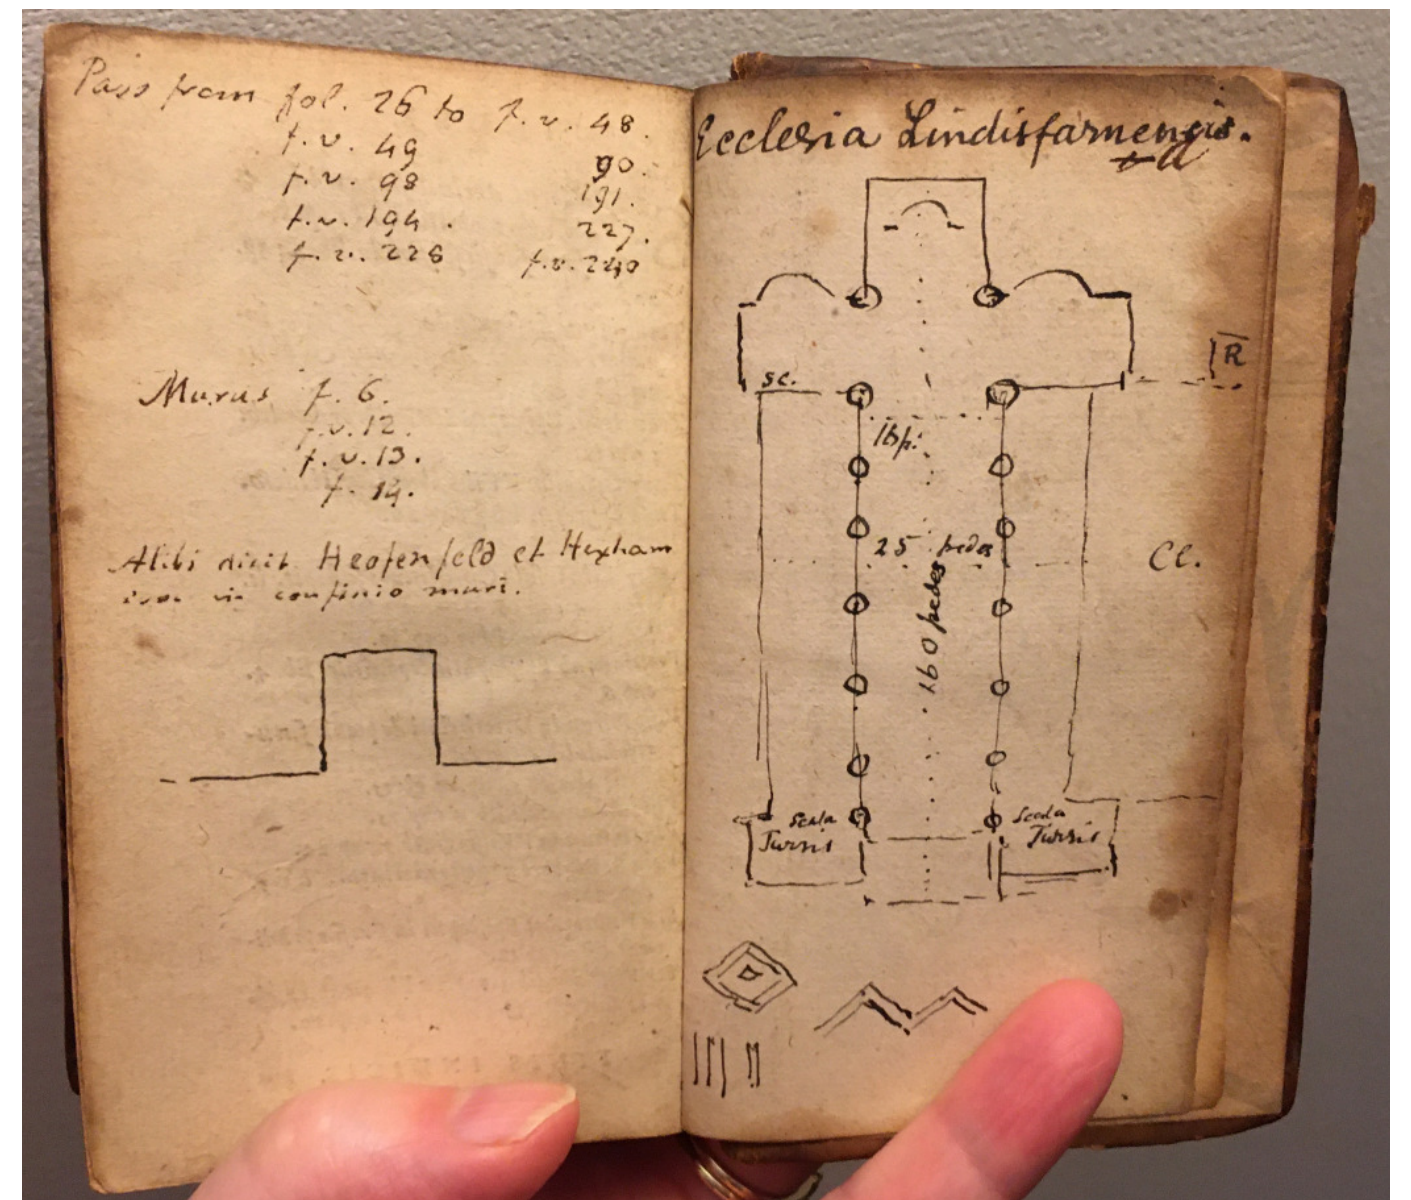 Pass from fol. 26 to f.v. 48.
f.v. 49 90.
f.v. 98 191.
f.v. 194. 227.
f.v. 228 f.v. 240
Murus f. 6.
f.v. 12.
f.v. 13.
f. 14.
Alibi dicit Heofenfeld et Hexham
confinio muri.
Ecclesia Lindisfarnensis.
R
sc.
16 p.
25 pedes
Cl.
160 pedes
Scala
Turris
Scala
Turris